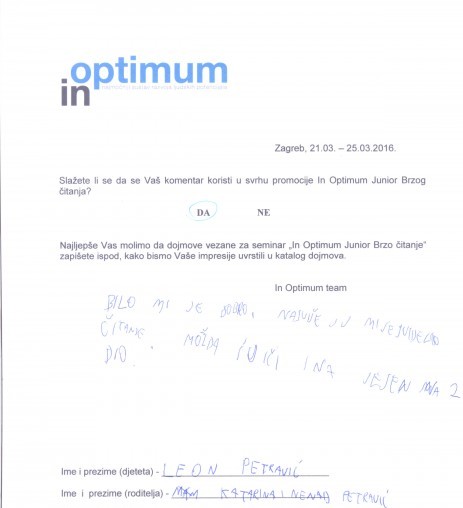 in optimum
Zagreb, 21.03. – 25.03.2016.
Slažete li se da se Vaš komentar koristi u svrhu promocije In Optimum Junior Brzog
čitanja?
DA NE
Najljepše Vas molimo da dojmove vezane za seminar „In Optimum Junior Brzo čitanje"
zapišete ispod, kako bismo Vaše impresije uvrstili u katalog dojmova.
In Optimum team
BILO MI JE DOBRO. NAJ MI JE
ČITANJE. MOŽDA ĆU IĆI I NA JEDEN NA 2
DIO.
Ime i prezime (djeteta) - LEON PETRAVIĆ
Ime i prezime (roditelja) - KATARINA I NENAD PETRAVIĆ